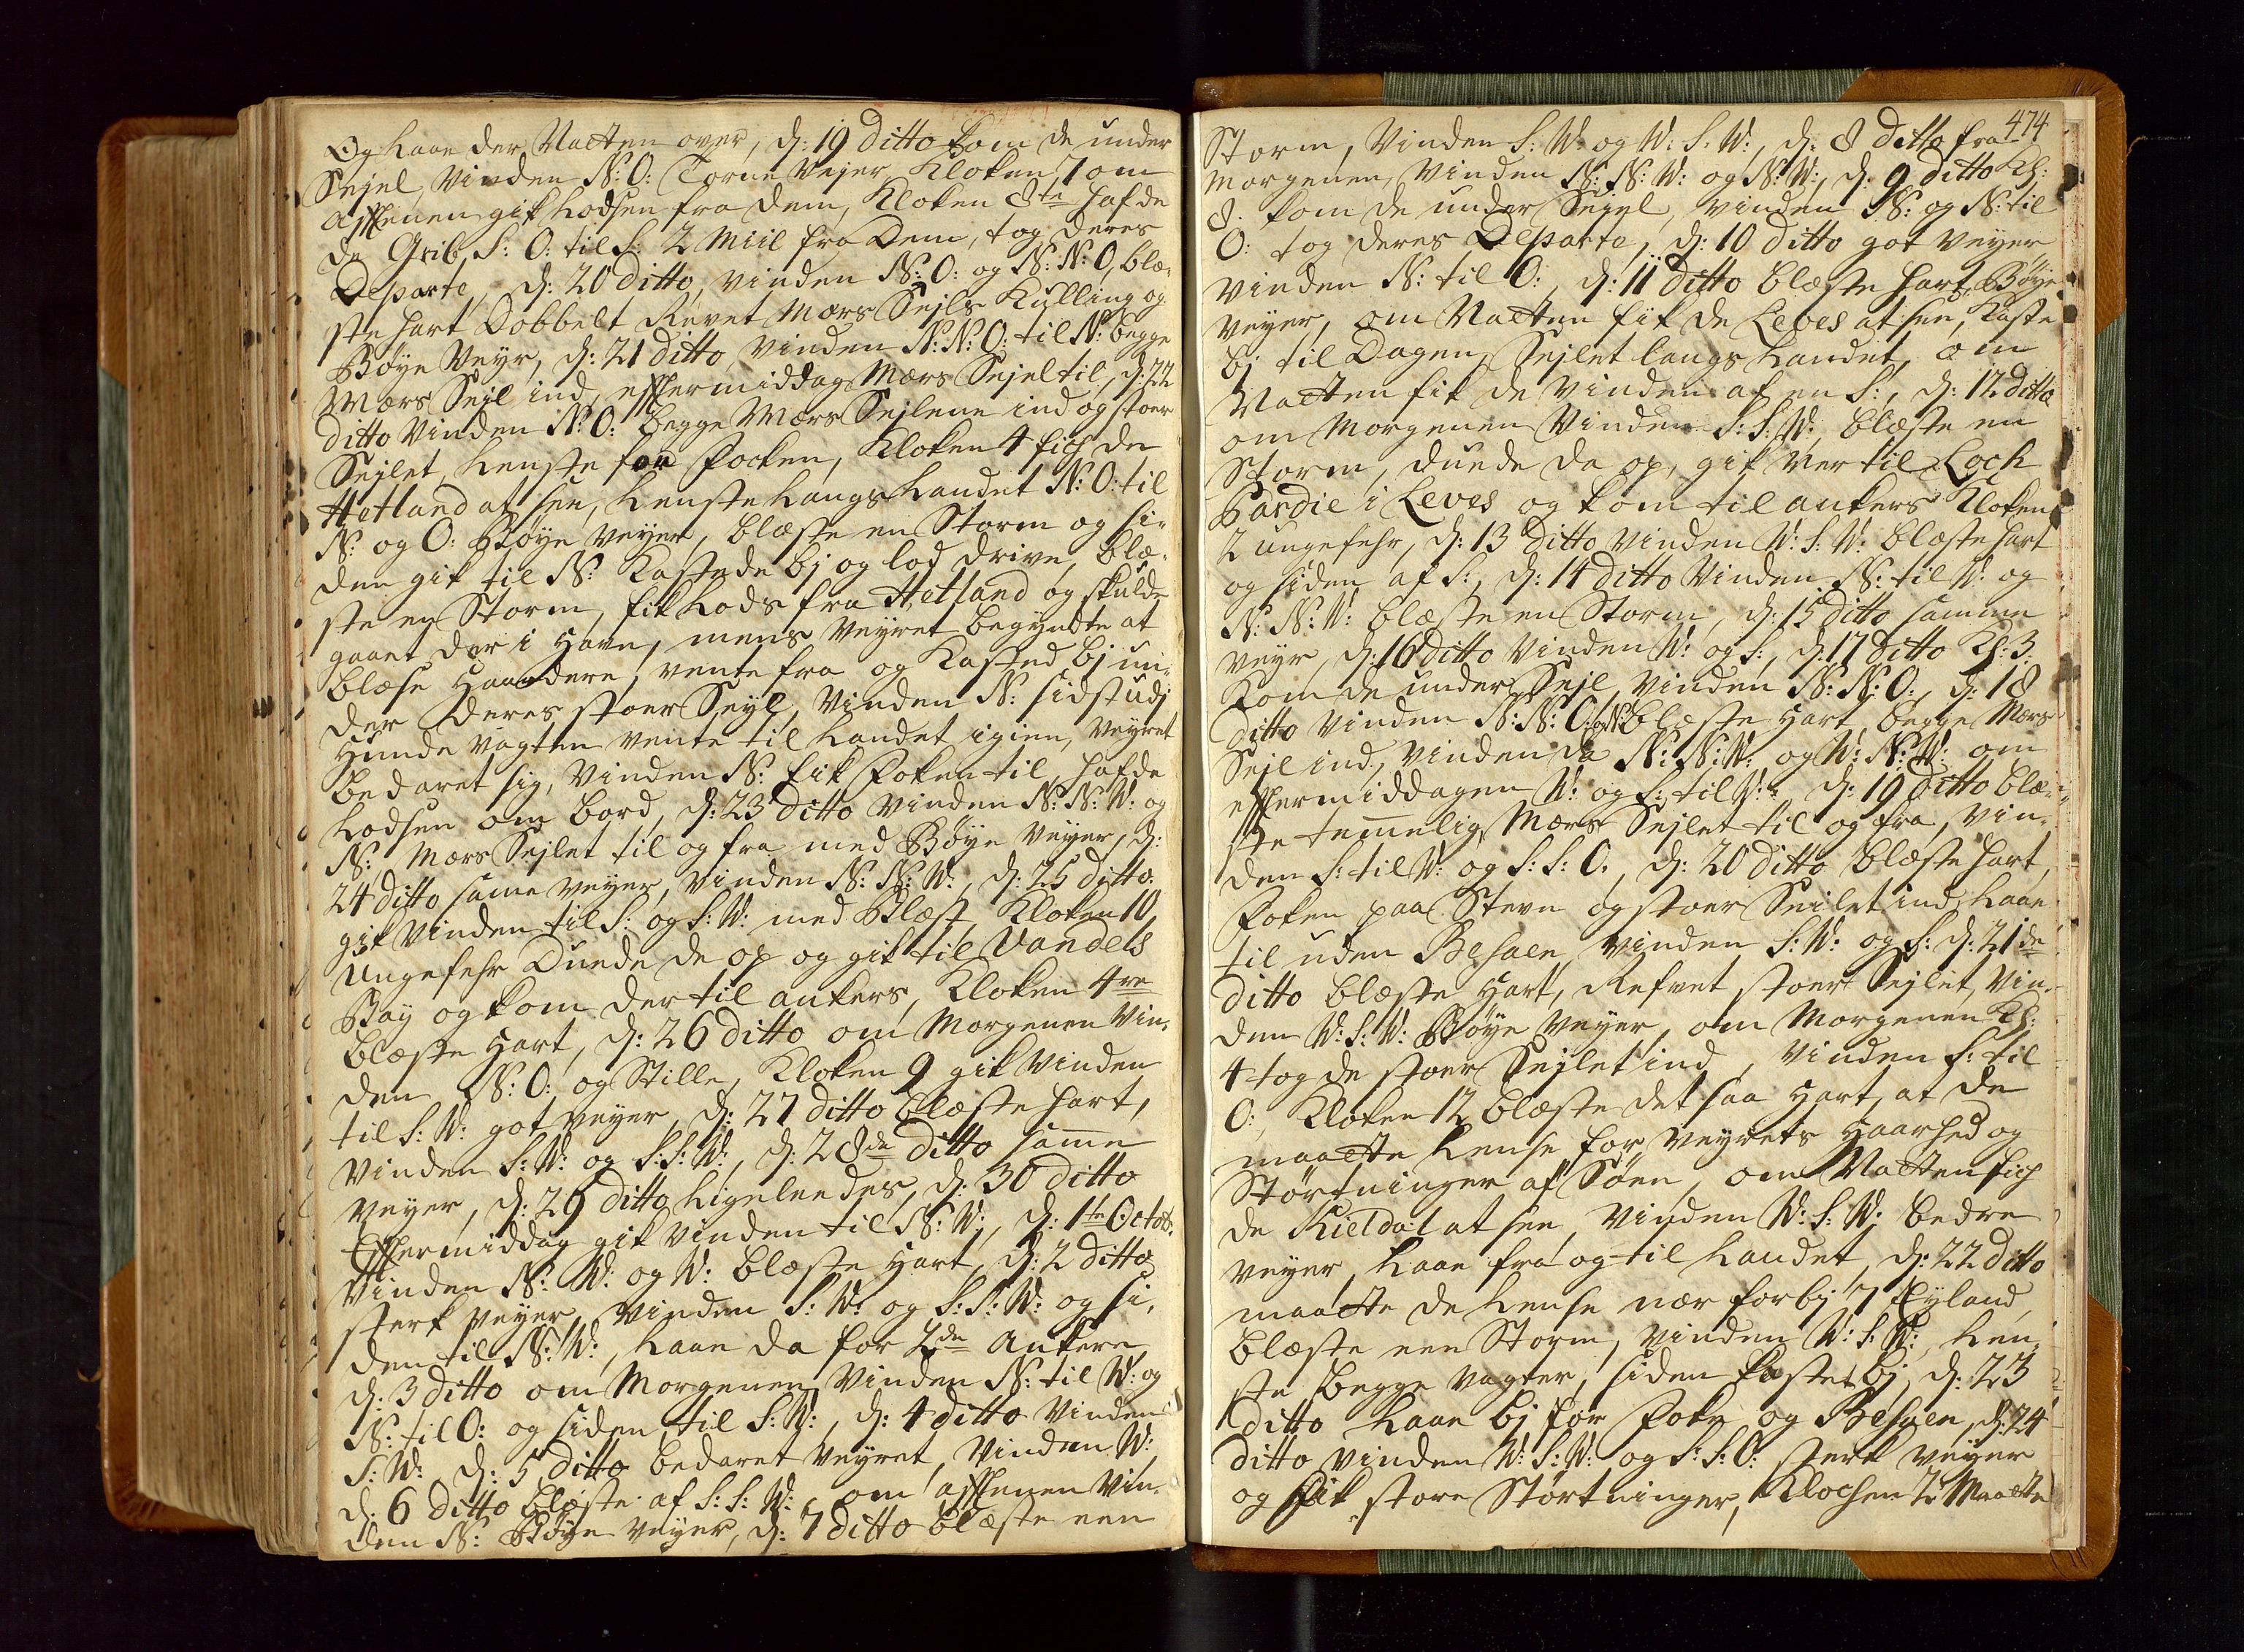 Og laae der Natten over, d: 19 ditto kom de under
Sejel, Vinden N: O: Torne Vejer Kloken 7 om
Afftenen gik Lodsen fra dem, Kloken 8te hafde
de Grib S: O: til S: 2 Miil fra Dem, tog deres
Departe, d: 20 ditto, vinden N: O: og N: N: O, blæ-
ste hart Dobbelt Revet Mærs Sejls Kulling og
Bøye Veyr, d: 21 ditto Vinden N: N: O: til N: begge
Mærs Sejl ind, efftermiddag Mærs Sejel til, d: 22
ditto Vinden N: O: begge Mærs Sejlene ind og stoer
Sejlet, lenste for Focken, Kloken 4 fich de
Hetland at see, lenste langs Landet N: O: til
N: og O: Bøye veyer, blæste en Storm og si-
den gik til N: Kastede bj og lod drive, blæ-
ste en Storm, fik Lods fra Hetland og skulde
gaaet der i Havn, mens Veyret begyndte at
blæse Haardere, vente fra og Kasted bj un-
der deres stoer Seyl, Vinden N: sidst udj
Hunde vagten vente til Landet igien, Veyret
bedaret sig, Vinden N: fik Foken til, hafde
Lodsen om bord, d: 23 ditto Vinden N: N: W: og
N: Mærs Sejlet til og fra med Bøye veyer, d:
24 ditto same veyer, Vinden N: N: W:, d: 25 ditto
gik Vinden til S: og S: W: med Blæst, Kloken 10
Ungefehr Duede de op og gik til Vandels
Bay og kom der til ankers, Kloken 4re
blæste Hart, d: 26 ditto om Morgenen Vin-
den N: O: og Stille, Kloken 9 gik Vinden
til S: W: got veyer, d: 27 ditto blæste hart,
Vinden S: W: og S: S: W:, d: 28de ditto samme
veyer, d: 29 ditto ligeleedes, d: 30 ditto
Efftermiddag gik Vinden til N: W:, d: 1te Octob:
Vinden N: W: og W: blæste Hart, d: 2 ditto
sterk veyer, Vinden S: W: og S: S: W: og si-
den til N: W:, laae da for 2de Ankere
d: 3 ditto om Morgenen Vinden N: til W: og
N: til O: og siden til S: W:, d: 4 ditto Vinden
S: W: d: 5 ditto bedaret Veyret, Vinden W:
d: 6 ditto blæste af S: S: W:, om afftenen Vin-
den N: Bøye veyer, d: 7 ditto blæste een
474
Storm, Vinden S: W: og W: S: W:, d: 8 ditto fra
Morgenen, Vinden N: N: W: og N: W:, d: 9 ditto Kl:
8. kom de under Segel, vinden N: og N: til
O: tog deres Departe, d: 10 ditto got Veyer
vinden N: til O:, d: 11 ditto blæste hart, Bøye
Veyer, om Natten fik de Leves at see, Kaste
bj til Dagen, Sejlet langs Landet, om
Natten fik de Vinden af en S:, d: 12 ditto
om Morgenen Vinden S: S: W:, blæste en
Storm, duede da op, gik Ner til Loch
Pardie i Leves og kom til ankers Kloken
2 ungefehr, d: 13 ditto Vinden W: S: W: blæste hart
og siden af S:, d: 14 ditto Vinden N: til W: og
N: N: W: blæste en Storm, d: 15 ditto samme
veyr, d: 16 ditto Vinden W: og S:, d: 17 ditto Kl: 3.
Kom de under Sejl, Vinden N: N: O:, d: 18
ditto Vinden N: N: O: og N: blæste Hart, begge Mærs
Sejl ind, vinden da N: N: W: og W: N: W: om
efftermiddagen W: og S: til W:, d: 19 ditto blæ-
ste temmelig, Mærs Sejlet til og fra, vin-
den S: til W: og S: S: O., d: 20 ditto blæste hart,
Foken paa Steven og stoer Seilet ind, laae
til uden Besaen, vinden S: W: og S: d: 21de
ditto blæste Hart, Refvet stoer Sejlet, Vin-
den W: S: W: Bøye veyer, om Morgenen Kl:
4 tog de stoer Sejlet ind, Vinden S: til
O:, Kloken 12 blæste det saa Hart, at de
maatte lense for veyrets Haarhed og
Størtninger af Søen, om Natten fich
de Kielda at see, Vinden W: S: W: bedre
veyer, laae fra og til Landet, d: 22 ditto
maatte de lense nær forbj 7 Eyland,
blæste een Storm, vinden W: S: W:, len-
ste begge vagter, siden kastet bj, d: 23
ditto laae bj for Foke og Besaen, d: 24
ditto vinden W: S: W: og S: S: O: sterk veyer
og fik store Størtninger, Klochen 2 Maatte